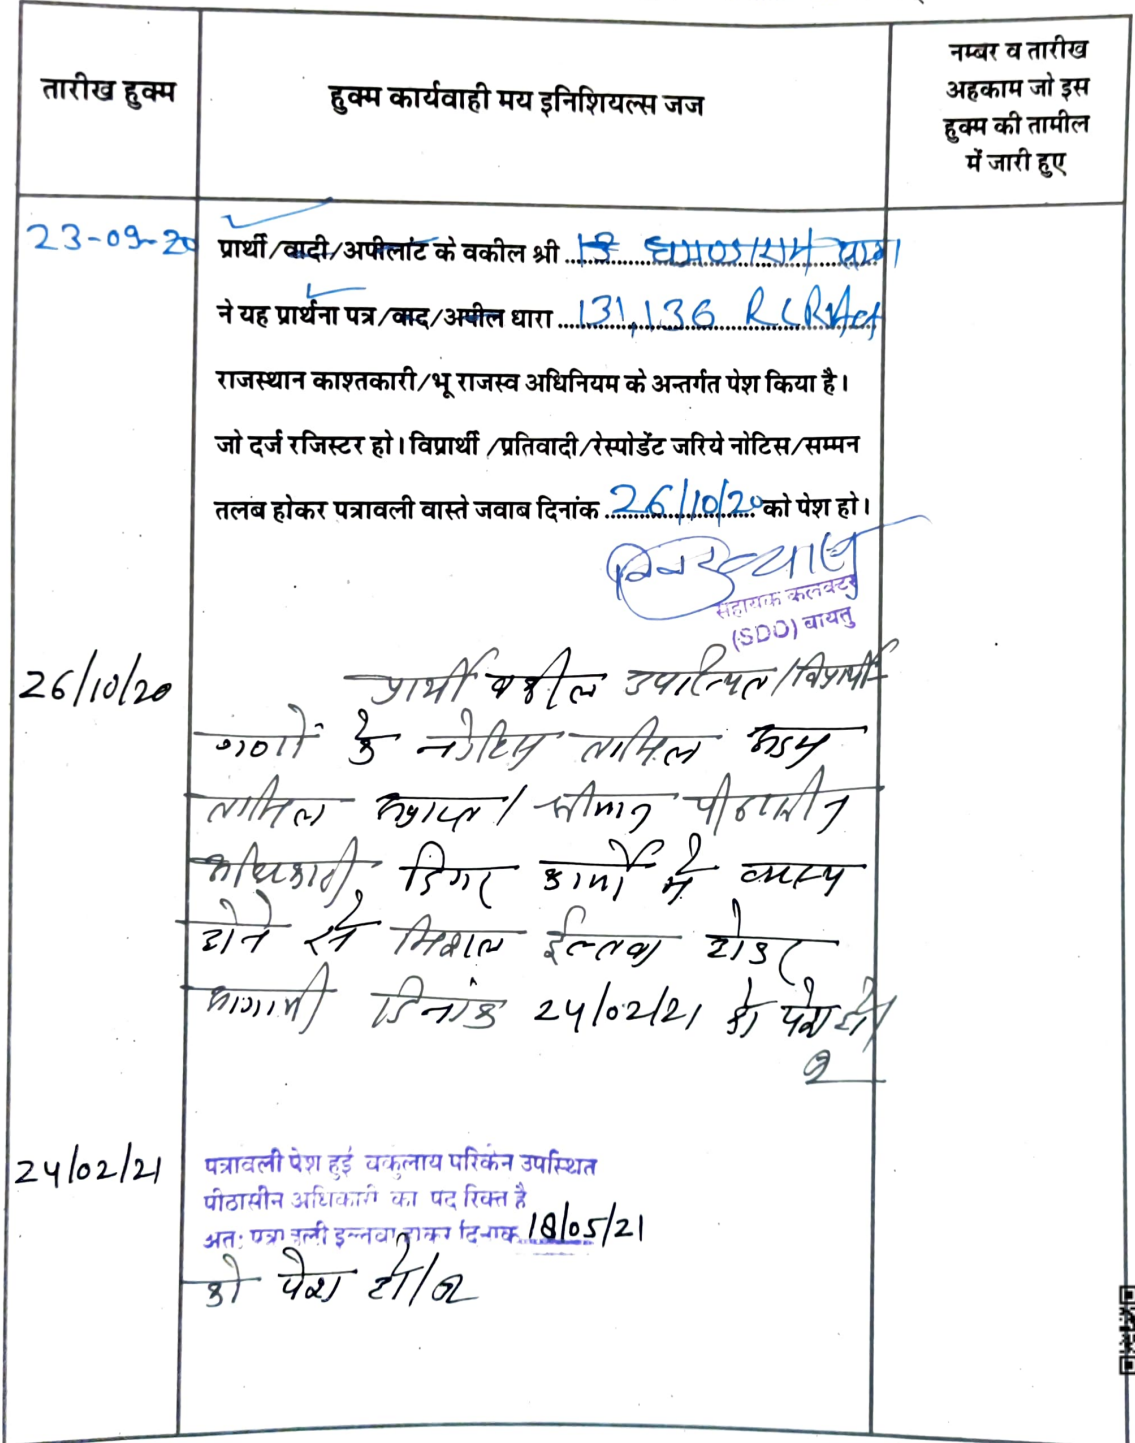 तारीख हुक्म
हुक्म कार्यवाही मय इनिशियल्स जज
नम्बर व तारीख
अहकाम जो इस
हुक्म की तामील
में जारी हुए
23-09-20
प्रार्थी/वादी/अपीलांट के वकील श्री
ने यह प्रार्थना पत्र/वाद/अपील धारा 131,136 R LR Act
राजस्थान काश्तकारी/भू राजस्व अधिनियम के अन्तर्गत पेश किया है।
जो दर्ज रजिस्टर हो। विप्रार्थी /प्रतिवादी/रेस्पोडेंट जरिये नोटिस/सम्मन
तलब होकर पत्रावली वास्ते जवाब दिनांक 26/10/20 को पेश हो।
सहायक कलक्टर
(SDO) बायतु
26/10/20
प्रार्थी वकील उपस्थित/विप्रार्थी
गणों के नोटिस तामिल अदम
तामिल अप्राप्त/ श्रीमान पीठासीन
अधिकारी डिगर कार्यों में व्यस्थ
होने से मिशल ईल्तवा होकर
आगामी दिनांक 24/02/21 को पेश हो।
24/02/21
पत्रावली पेश हुई वकुलाय परिकेन उपस्थित
पीठासीन अधिकारी का पद रिक्त है
अतः पत्रावली इल्तवा होकर दिनांक 18/05/21
को पेश हो/